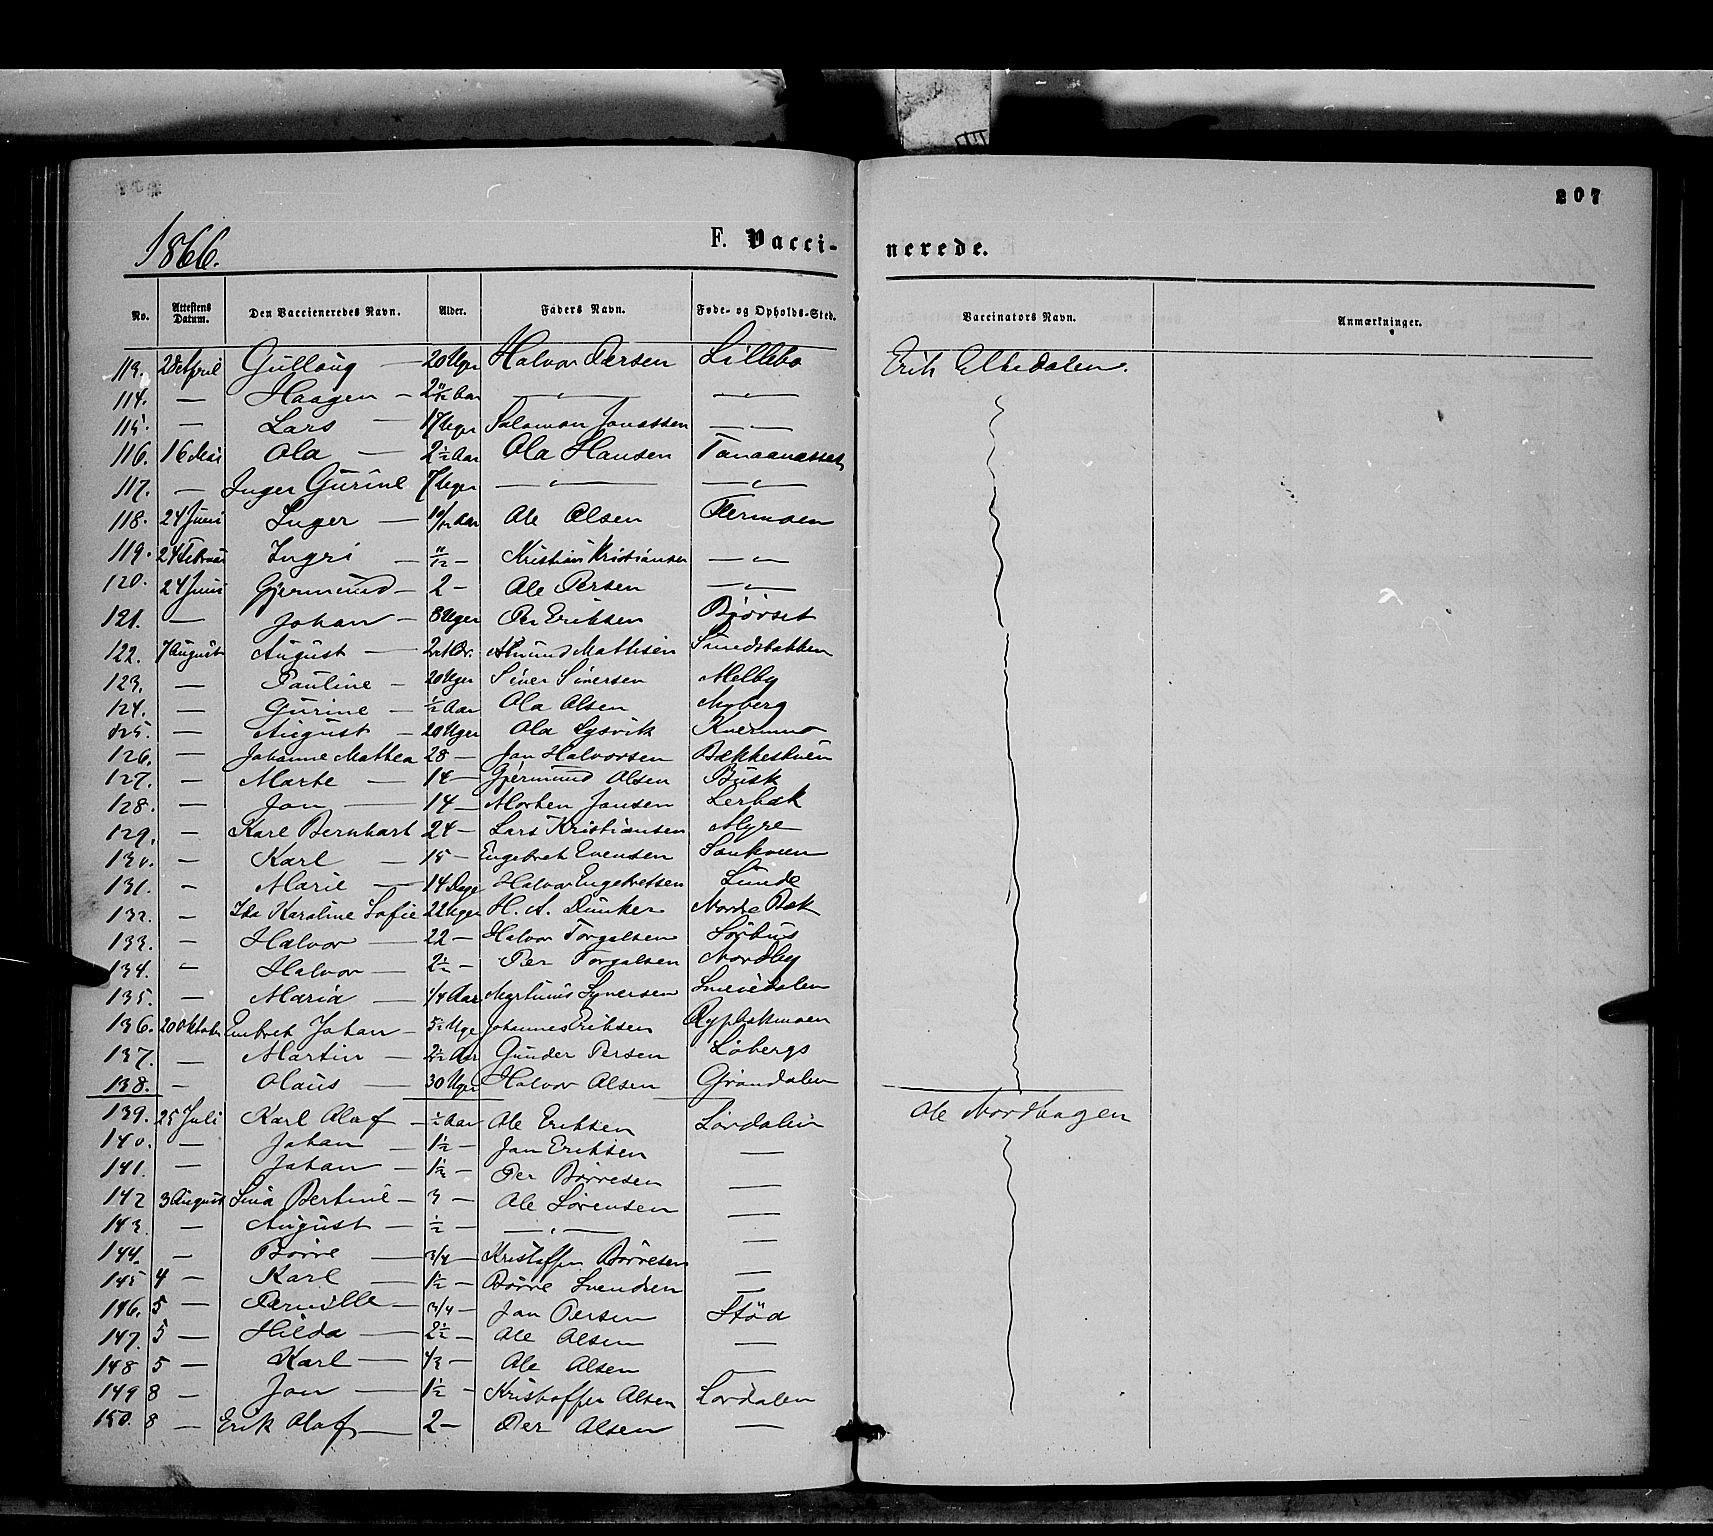 207
1866.
F. Vacci- nerede.
No. Attestens Datum. Den Vaccieneredes Navn. Alder. Faders Navn. Føde- og Opholds-Sted. Vaccinators Navn. Anmærkninger.
113. 28 April Gullaug — 20 Uger Halvor Persen Lillebo Erik Elkedalen.
114. — Haagen — 2 11/12 Aar — " — — " —
115. — Lars — 17 Uger Salomon Jonassen — " —
116. 16 Mai Ola — 2 1/2 Aar Ola Hansen
117. — Inger Gurine 7 Uger — " — — " —
118. 24 Juni Inger — 10/12 Aar Ole Olsen Flermoen
119. 24 Februar Ingri — 11/12 — Kristian Kristiansen — " —
120. 24 Juni Gjermund — 2 — Ole Persen — " —
121. — Johan — 8 Uger Per Eriksen Bjørset
122. 7 August August — Amund Mathisen Sundsbakken
123. — Pauline — 20 Uger Siver Siversen Melby
124. — Gurine — 1/2 Aar Ola Olsen Nyberg
125. — August — 20 Uger Ola Lysvik Kvernmo
126. — Johanne Mathea 28 — Jon Halvorsen Bækkeskuen
127. — Marte — 14 — Gjermund Olsen Busk
128. — Jon — 14 — Morten Jansen Lerbæk
129. — Karl Bernhart 24 — Lars Kristiansen Myre
130. — Karl — 15 — Engebret Evensen
131. — Marie — 14 Dage Halvor Engebretsen Lunde
132. — Ida Karoline Sofie 22 Uger H. A. Dunker Nordre Bæk
133. — Halvor — 22 — Halvor Torgalsen Sørhus
134. " Halvor — 2 1/2 — Per Torgalsen Nordby
135. — Maria — 1/4 Aar Syversen
136. 20 Oktober Embret Johan — 5 1/2 Uge Johannes Eriksen Rypbækmoen
137. — Martin — 2 1/2 Aar Gunder Persen Løbergs
138. — Olaus — 30 Uger Halvor Olsen Grøndalen
139. 25 Juli Karl Olaf — 1/2 Aar Ole Eriksen Lørdalen Ole Nordhagen
140. — Johan — 1 1/2 — Jon Eriksen —
141. — Johan — 1 1/2 — Per Børresen
142 3 August Lina Bertine — 3 — Ole Sørensen —
143. — August — 1/2 — — " — —
144. — Børre — 3/4 — Kristoffer Børresen —
145 4 — Karl — 1 1/2 — Børre Svendsen —
146. 5 — Pernille — 3/4 — Jon Persen Støa
147. 5 — Hilda — 2 1/2 — Ole Olsen —
148 5 — Karl — 4/3 — Ole Olsen —
149 8 — Jon — 1 1/2 — Kristoffer Olsen Lørdalen
150. 8 — Erik Olaf — 2 — Per Olsen —